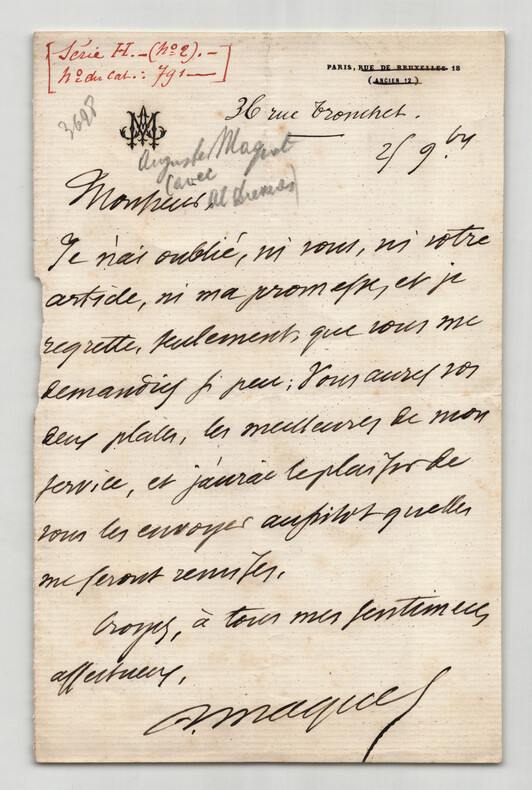 Série H. - (No 2). -
No du cat. : 791 -
PARIS, RUE DE BRUXELLES 18
(ANCIEN 12)
3698
36 rue Tronchet.
Auguste Maquet
(avec
Al Dumas)
25 9.bre
Monsieur,
Je n'ai oublié, ni vous, ni votre
article, ni ma promesse, et je
regrette, seulement, que vous me
demandiez si peu ; Vous aurez vos
deux places, les meilleures de mon
service, et j'aurai le plaisir de
vous les envoyer aussitôt quelles
me seront remises.
Croyez, à tous mes sentimens
affectueux,
A. Maquet